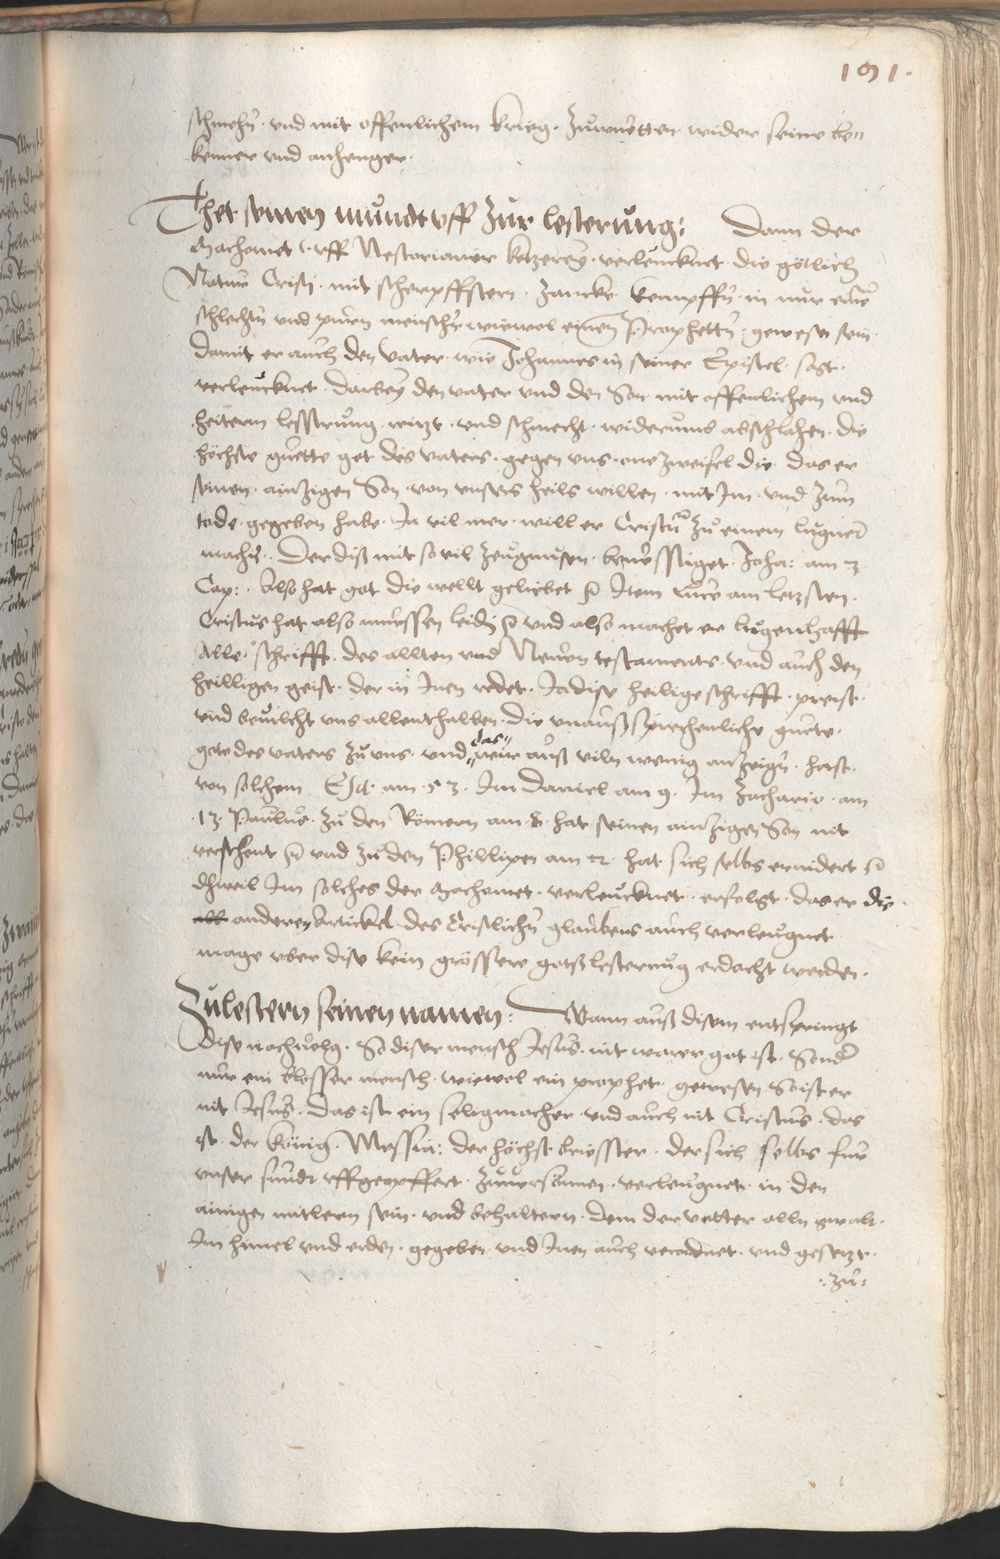 191.
schmehen. vnd mit offenlichem krieg. zuwuetten wider seine be„
kenner vnd anhenger.
Thet seinen mundt vff zur lesterung: Dann der
Machomet vff Nestorianer ketzerey. verleucknet die götlich
Natur Cristi. mit scherpffstem. zancke kempffen in nur eine
schlechten vnd puren menschen wiewol einen Prophetten gewest sein.
damit er auch den vater. wie Johannes in seiner Epistel. sagt.
verleucknet. darbey den vater vnd den Son. mit offenlichem vnd
heiterm lesstrung reitzt. vnd schmecht. widerumb abschlahen. die
höchste guette got des vaters. gegen vns. one zweifel die das er
seinen ainzigen Son. von vnsers heils willen. mit Jm vnd zum
tode. gegeben habe. Ja vil mer. will er Cristum zu einem lugner
machen. Der diß mit souil zeugnusen. beuesstiget. Joha: am 3
Cap: Also hat got die wellt geliebet Item Luce am letzsten.
Cristus hat also muessen leiden vnd also machet er lugenhafft
Alle schrifft. des allten vnd Newen testaments. vnd auch den
heilligen geist. der in Jnen redet. Ja dise heilige schrifft. preist.
vnd beuilcht vns allenthalben. die vnaußsprechenliche guete.
gotes des vaters zu vns. vnd das wir auß vilen wenig anzeigen. hast.
von solchem Esa. am. 53. Im Daniel am 9. Im Zacharie. am
.13. Paulus. zu den Römern am. 8. hat seinen ainzigen Son nit
verschont vnd zu den Phillipen am 2. hat sich selbs ernidert
dhweil Im solches der Machomet. verleucknet. erfolgt. das er die
anderen Artickel des Cristlichen glaubens auch verleugnet
mage vber dise kein grössere gotslesterung erdacht werden.
Zulestern seinen namen: Wann auß disem entspringt
dise nachuolg. So diser mensch Jesus. nit warer got ist. Sonder
nur ein blosser mensch. wiewol ein prophet. gewesen So ist er
nit Jesus. das ist ein seligmacher vnd auch nit Cristus. das
ist. der könig. Messia: der höchst briesster. der sich selbs fur
vnser sundt vffgeopffert. zuuersonen. verleugnet. in den
ainigen mitlern sein. vnd behaltern. dem der vatter allen gwalt.
Im himel vnd erden. gegeben. vnd Jnen auch verordnet. vnd gesetzt.
.zu.